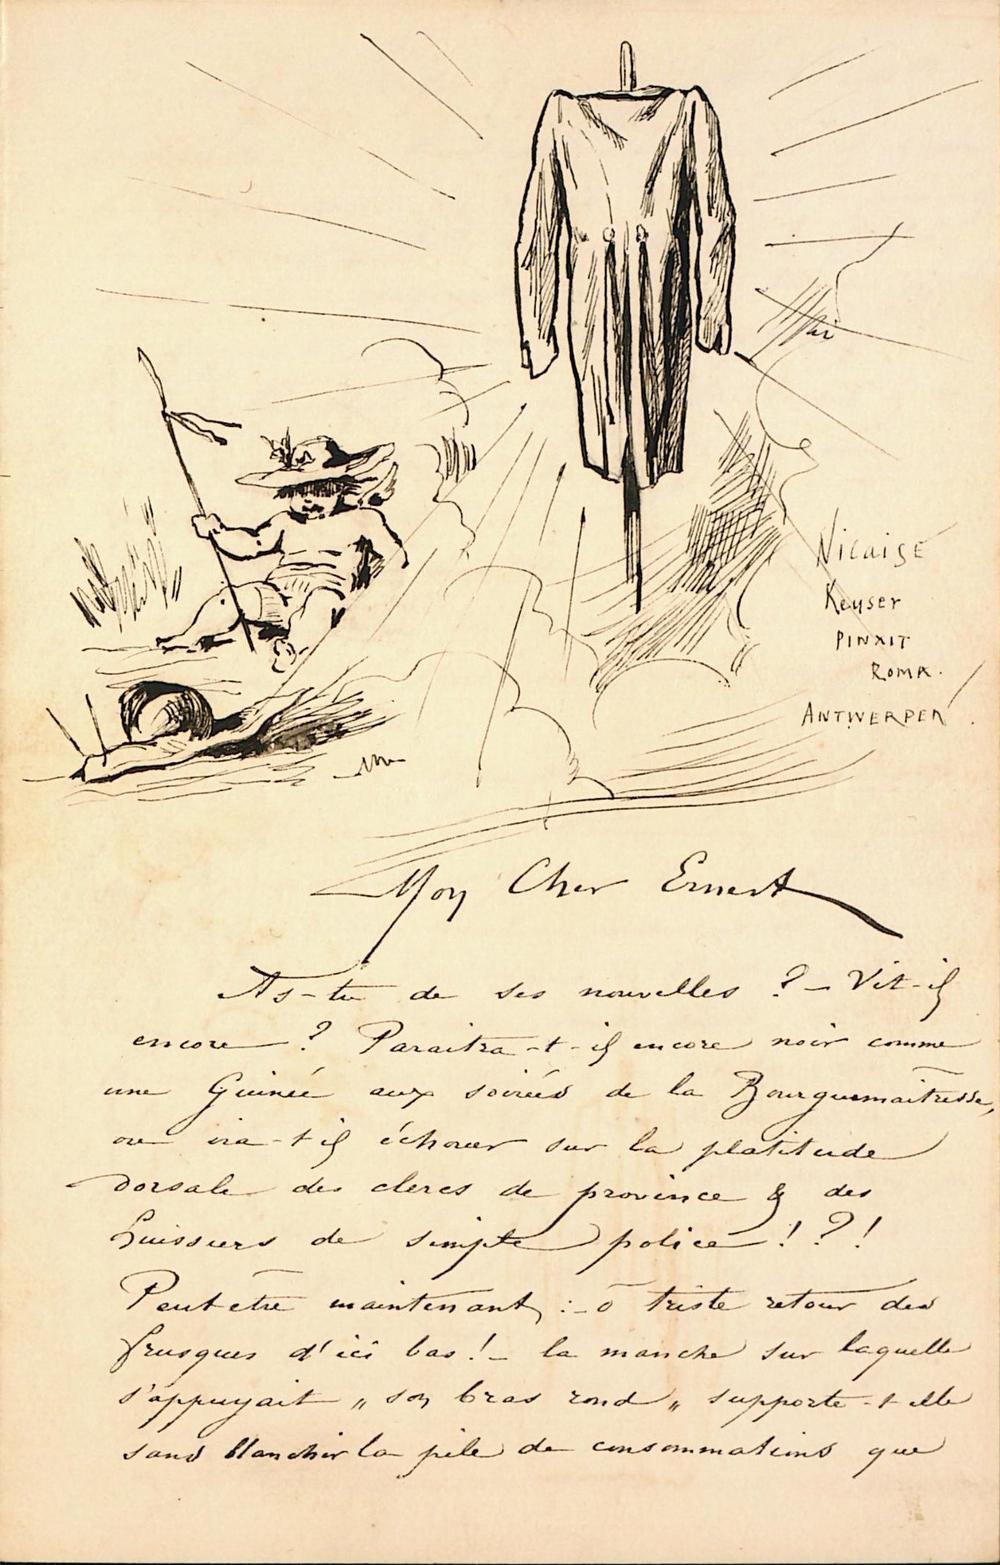 Nicaise
Keyser
PINXIT
ROMA.
ANTWERPEN.
Mon Cher Ernest
As-tu de ses nouvelles ? — Vit-il
encore ? Paraitra-t-il encore noir comme
une Guinée aux soirées de la Bourguemaitresse,
ou ira-t-il échouer sur la platitude
dorsale des clercs de province & des
huissiers de simple police !?!
Peut etre maintenant, :- ô triste retour des
frusques d'ici bas ! — la manche sur laquelle
s'appuyait „ son bras rond „ supporte-t-elle
sans blanchir la pile de consommations que